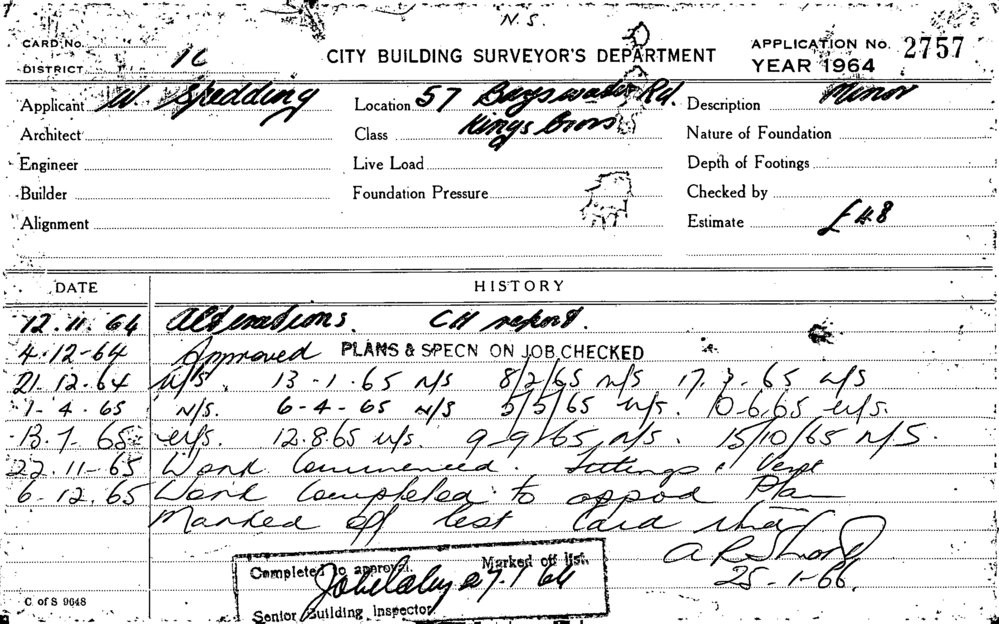 N.S.
CARD No.
DISTRICT 16
CITY BUILDING SURVEYOR'S DEPARTMENT
APPLICATION No. 2757
YEAR 1964
Applicant W. Spedding Location 57 Bayswater Rd. Description Minor
Architect Class Kings Cross Nature of Foundation
Engineer Live Load Depth of Footings
Builder Foundation Pressure Checked by
Alignment Estimate £48
DATE HISTORY
12.11.64 Alterations. CH report.
4.12-64 Approved PLANS & SPECN ON JOB CHECKED
21.12.64 N/S. 13-1.65 N/S 8/2/65 N/S 17.3-65 N/S
1-4.65 N/S. 6-4-65 N/S 5/5/65 N/S. 10-6.65 N/S.
13.7-65 N/S. 12.8.65 N/S. 9-9/65 N/S. 15/10/65 N/S.
22.11-65 Work Commenced. &
6-12.65 Work Completed to Plan
Marked off Card
25-1-66.
Completed to approval. Marked off list.
Senior Building Inspector
C of S 9648